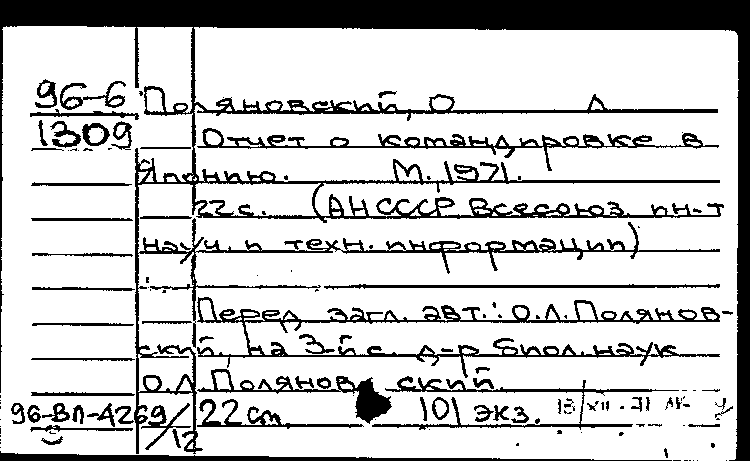 96-6 Поляновский, О Л
1309 Отчет о командировке в
Японию. М., 1971.
22 с. (АН СССР. Всесоюз. ин-т
науч. и техн. информации)
Перед загл. авт.: О.Л. Полянов-
ский, на 3-й с. д-р биол. наук
О.Л. Поляновский.
96-ВЛ-4269/12 22 cm. 101 экз. 13/XII-71